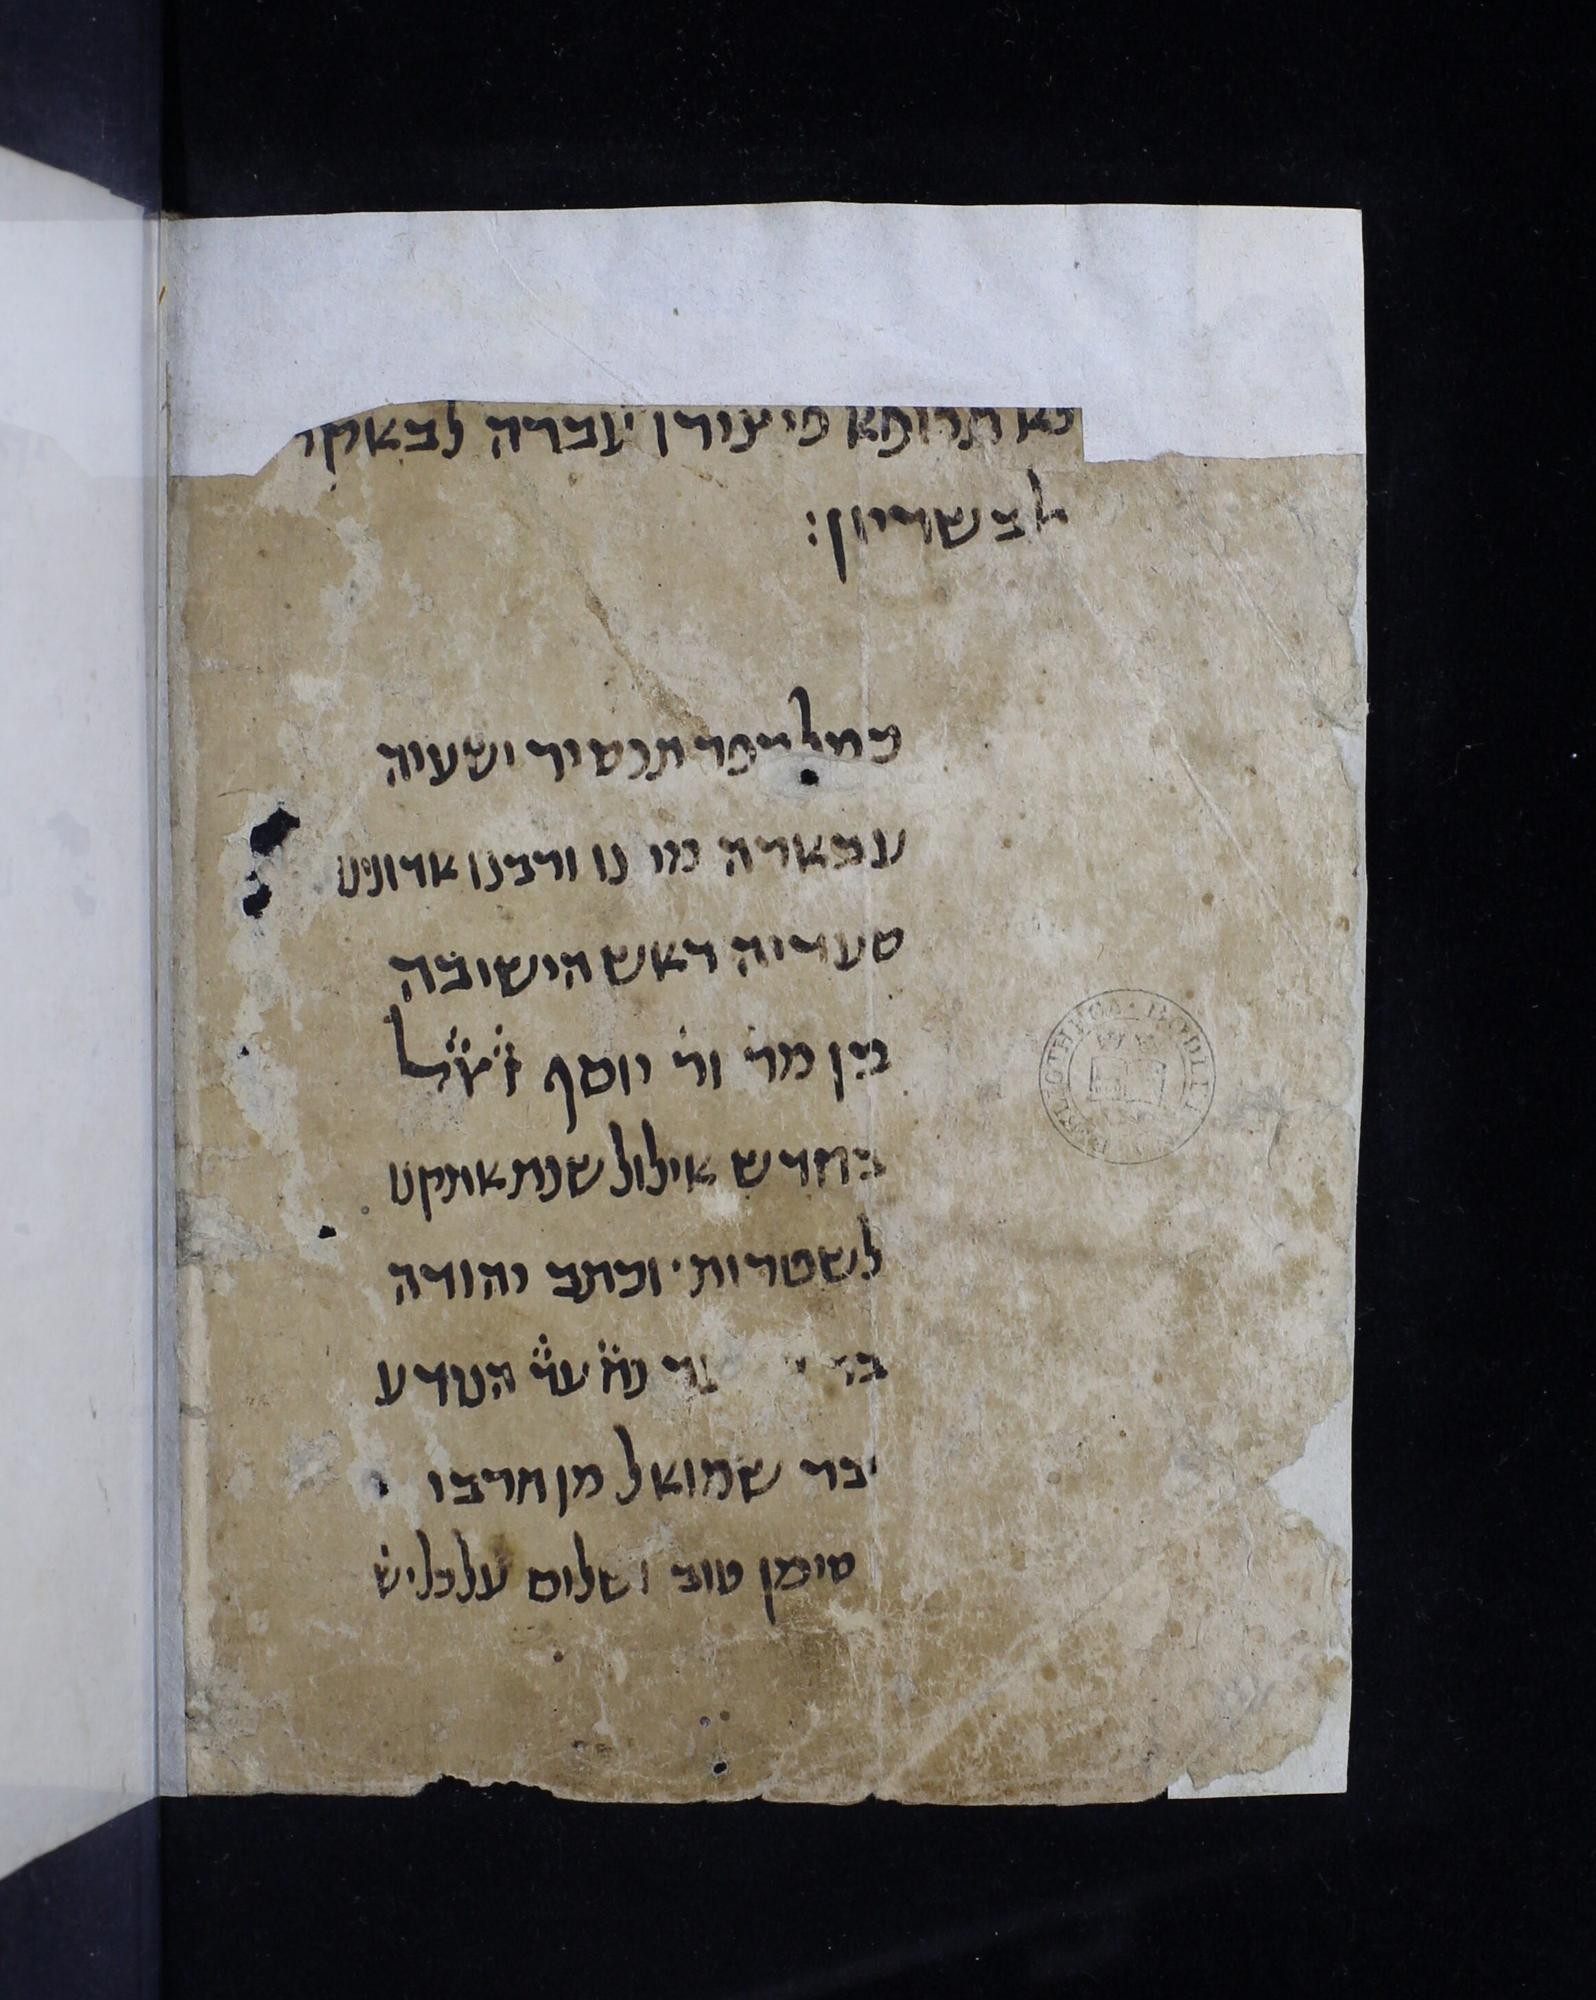 תרותא פי עירן עברה לבאקר
לבשריון:
כמל ספר תפסיר ישעיה
עבארה נו ורבנו אדונינו
סעדיה ראש הישובה
בין מר ור יוסף זצ״ל
בחדש אילול שנת אתקט
לשטרות· וכתב יהודה
בר נח עד הנודע
בר שמואל מן חרבו
סימן טוב ושלום על כל יש
BIBLIOTHECA · BODLEI